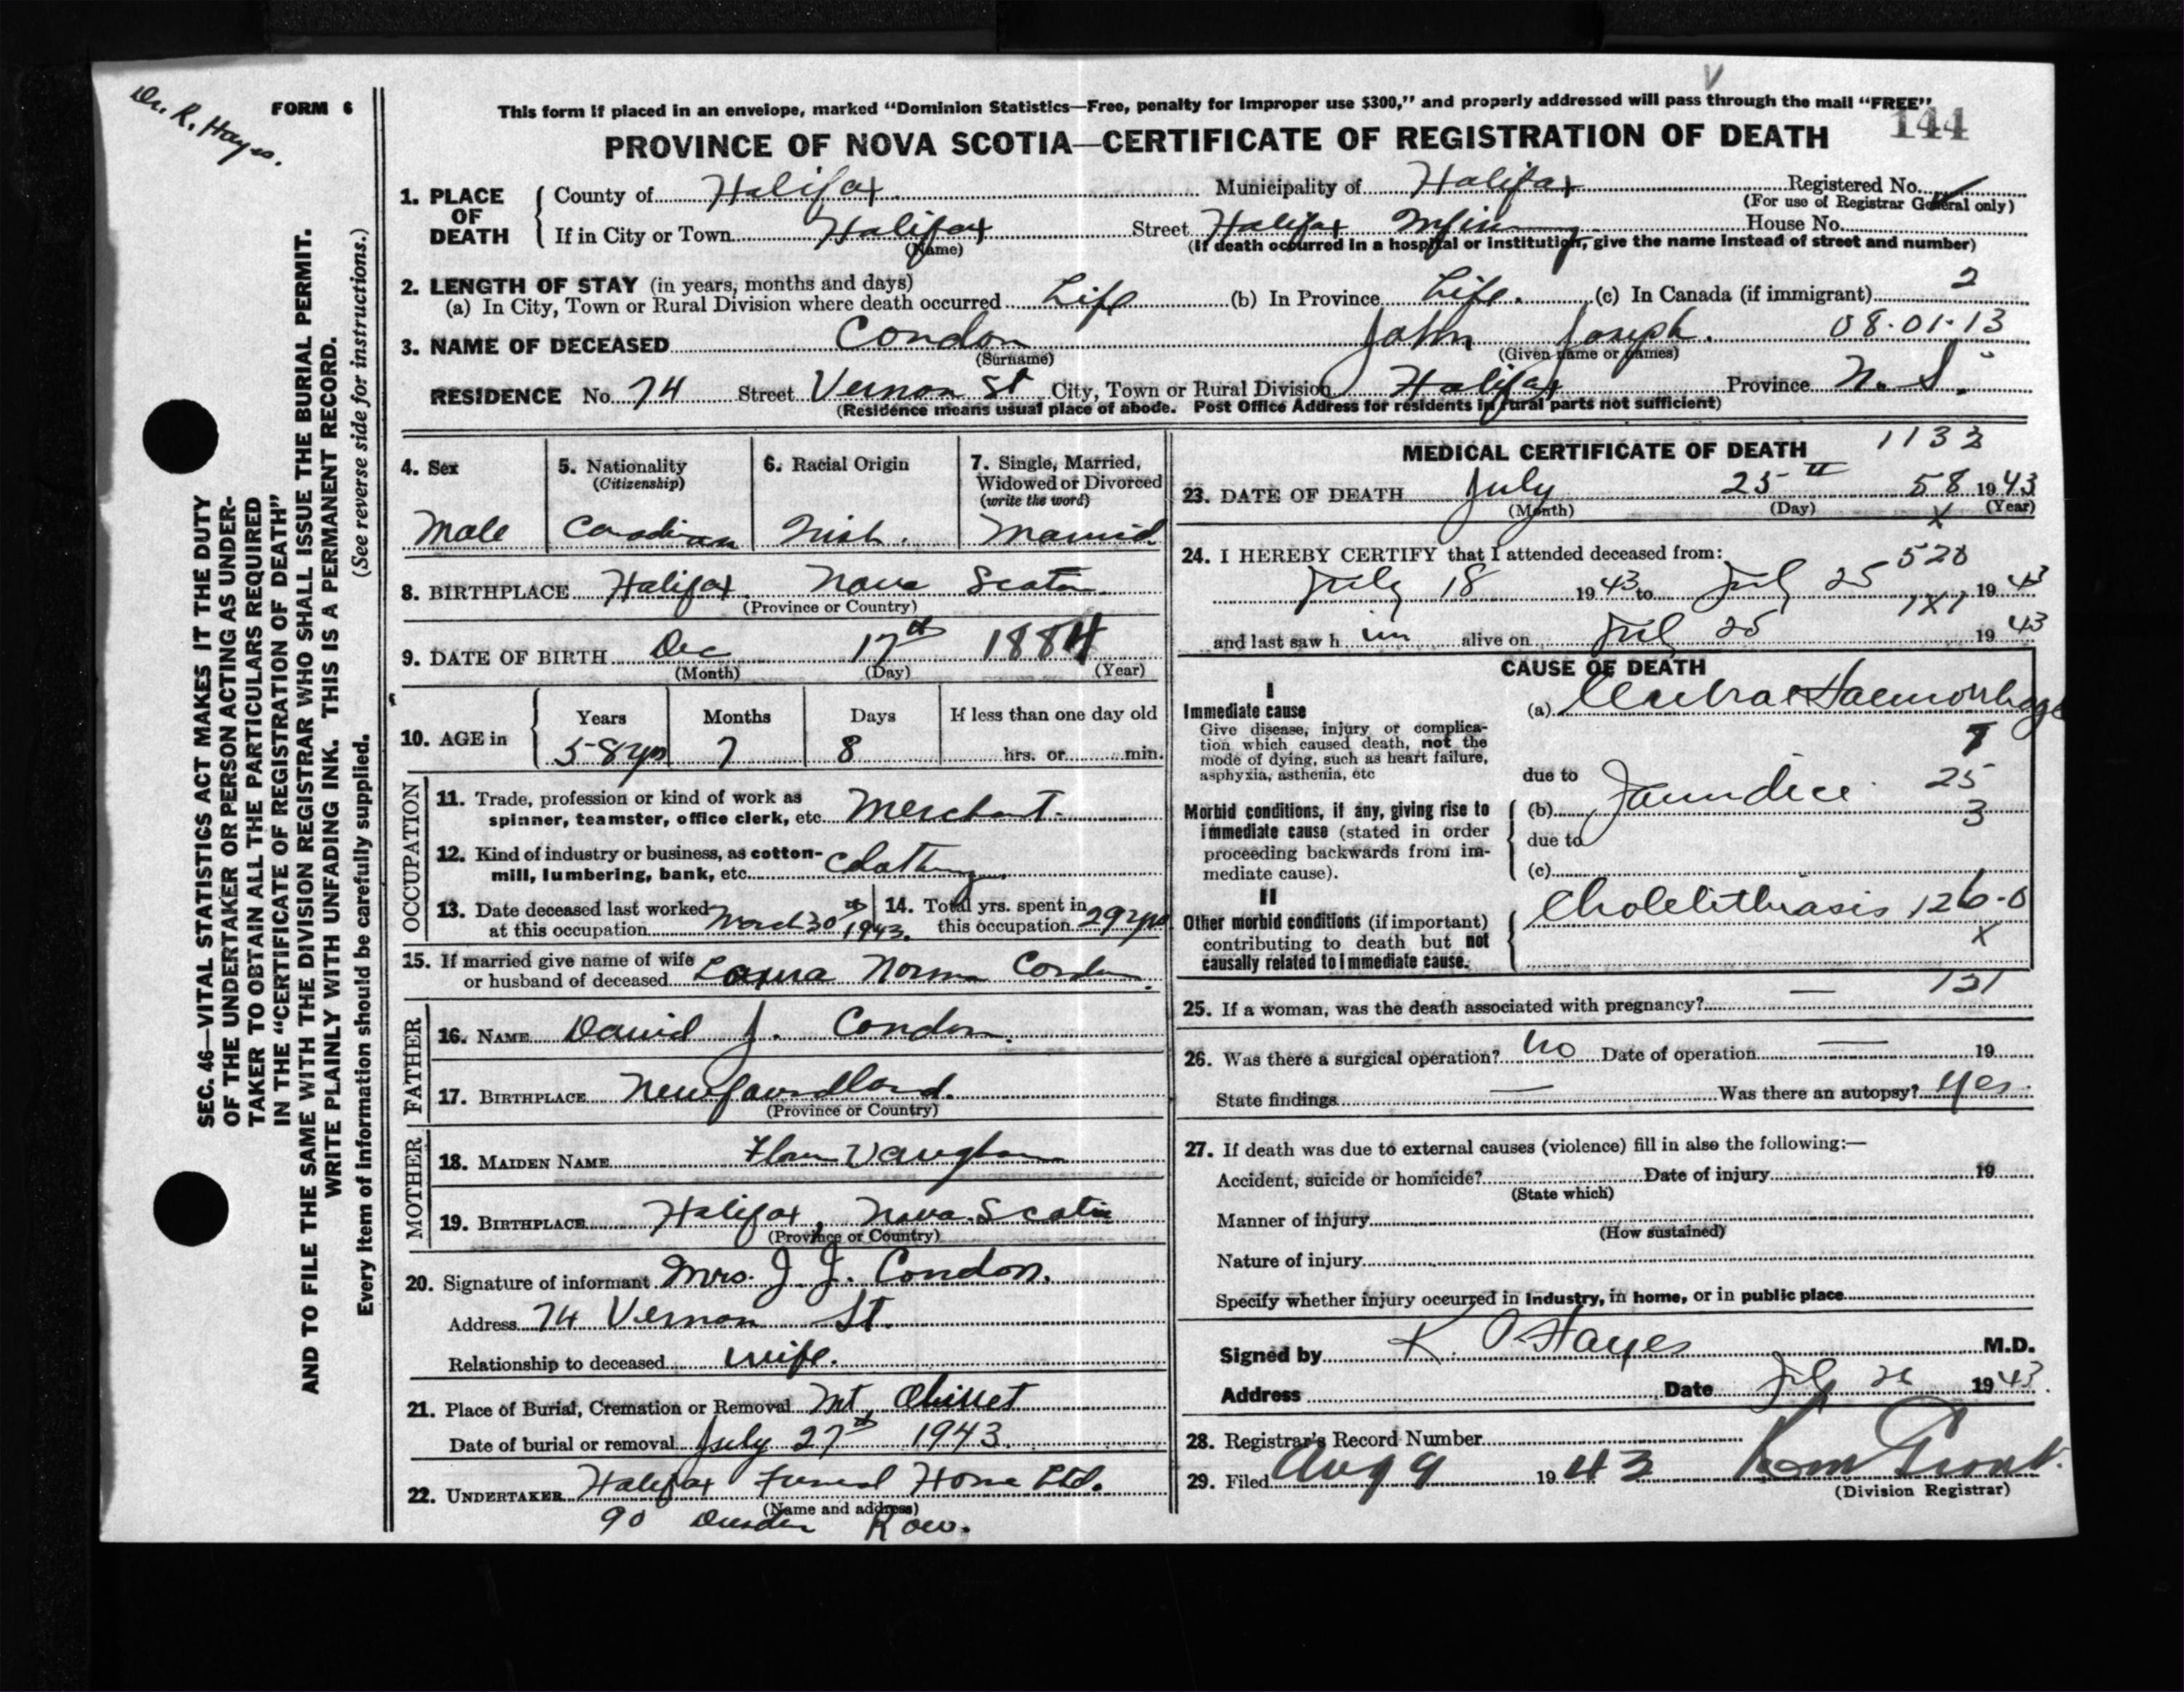 Dr. R. Hayes.
FORM 6
This form if placed in an envelope, marked "Dominion Statistics—Free, penalty for improper use $300," and properly addressed will pass through the mail "FREE"
144
PROVINCE OF NOVA SCOTIA—CERTIFICATE OF REGISTRATION OF DEATH
SEC. 46—VITAL STATISTICS ACT MAKES IT THE DUTY
OF THE UNDERTAKER OR PERSON ACTING AS UNDER-
TAKER TO OBTAIN ALL THE PARTICULARS REQUIRED
IN THE "CERTIFICATE OF REGISTRATION OF DEATH"
AND TO FILE THE SAME WITH THE DIVISION REGISTRAR WHO SHALL ISSUE THE BURIAL PERMIT.
WRITE PLAINLY WITH UNFADING INK. THIS IS A PERMANENT RECORD.
Every item of information should be carefully supplied. (See reverse side for instructions.)
1. PLACE OF DEATH
County of Halifax Municipality of Halifax Registered No.
(For use of Registrar General only)
If in City or Town Halifax Street Halifax Infirmary House No.
(Name) (If death occurred in a hospital or institution, give the name instead of street and number)
2. LENGTH OF STAY (in years, months and days)
(a) In City, Town or Rural Division where death occurred Life (b) In Province Life. (c) In Canada (if immigrant) 2
08-01-13
3. NAME OF DECEASED Condon John Joseph.
(Surname) (Given name or names)
RESIDENCE No. 74 Street Vernon St City, Town or Rural Division Halifax Province N. S.
(Residence means usual place of abode. Post Office Address for residents in rural parts not sufficient)
4. Sex
Male
5. Nationality
(Citizenship)
Canadian
6. Racial Origin
Irish.
7. Single, Married,
Widowed or Divorced
(write the word)
Married
8. BIRTHPLACE Halifax Nova Scotia
(Province or Country)
9. DATE OF BIRTH Dec 17th 1884
(Month) (Day) (Year)
10. AGE in
Years Months Days If less than one day old
58 yrs 7 8 hrs. or min.
OCCUPATION
11. Trade, profession or kind of work as
spinner, teamster, office clerk, etc. Merchant.
12. Kind of industry or business, as cotton-
mill, lumbering, bank, etc. Clothing.
13. Date deceased last worked
at this occupation March 30th 1943.
14. Total yrs. spent in
this occupation 29 yrs
15. If married give name of wife
or husband of deceased Laura Norma Condon.
FATHER
16. NAME David J. Condon
17. BIRTHPLACE Newfoundland.
(Province or Country)
MOTHER
18. MAIDEN NAME Vaughan
19. BIRTHPLACE Halifax, Nova Scotia
(Province or Country)
20. Signature of informant Mrs. J. J. Condon.
Address 74 Vernon St.
Relationship to deceased wife.
21. Place of Burial, Cremation or Removal Mt. Olivet
Date of burial or removal July 27th 1943.
22. UNDERTAKER Halifax Funeral Home Ltd.
(Name and address)
90 Dresden Row.
MEDICAL CERTIFICATE OF DEATH 1133
23. DATE OF DEATH July 25th 58 1943
(Month) (Day) (Year)
X
24. I HEREBY CERTIFY that I attended deceased from: 520
July 18 1943 to July 25 1943
1X1
and last saw him alive on July 25 1943
CAUSE OF DEATH
I
Immediate cause
Give disease, injury or complica-
tion which caused death, not the
mode of dying, such as heart failure,
asphyxia, asthenia, etc
(a) Cerebral Haemorrhage
due to
Morbid conditions, if any, giving rise to
immediate cause (stated in order
proceeding backwards from im-
mediate cause).
(b) Jaundice. 25
3
due to
(c)
II
Other morbid conditions (if important)
contributing to death but not
causally related to immediate cause.
Cholelithiasis 126-0
X
131
25. If a woman, was the death associated with pregnancy? —
26. Was there a surgical operation? No Date of operation — 19
State findings — Was there an autopsy? Yes.
27. If death was due to external causes (violence) fill in also the following:—
Accident, suicide or homicide? Date of injury 19
(State which)
Manner of injury
(How sustained)
Nature of injury
Specify whether injury occurred in industry, in home, or in public place
Signed by Hayes M.D.
Address Date July 26 1943.
28. Registrar's Record Number
29. Filed Aug 9 1943
(Division Registrar)